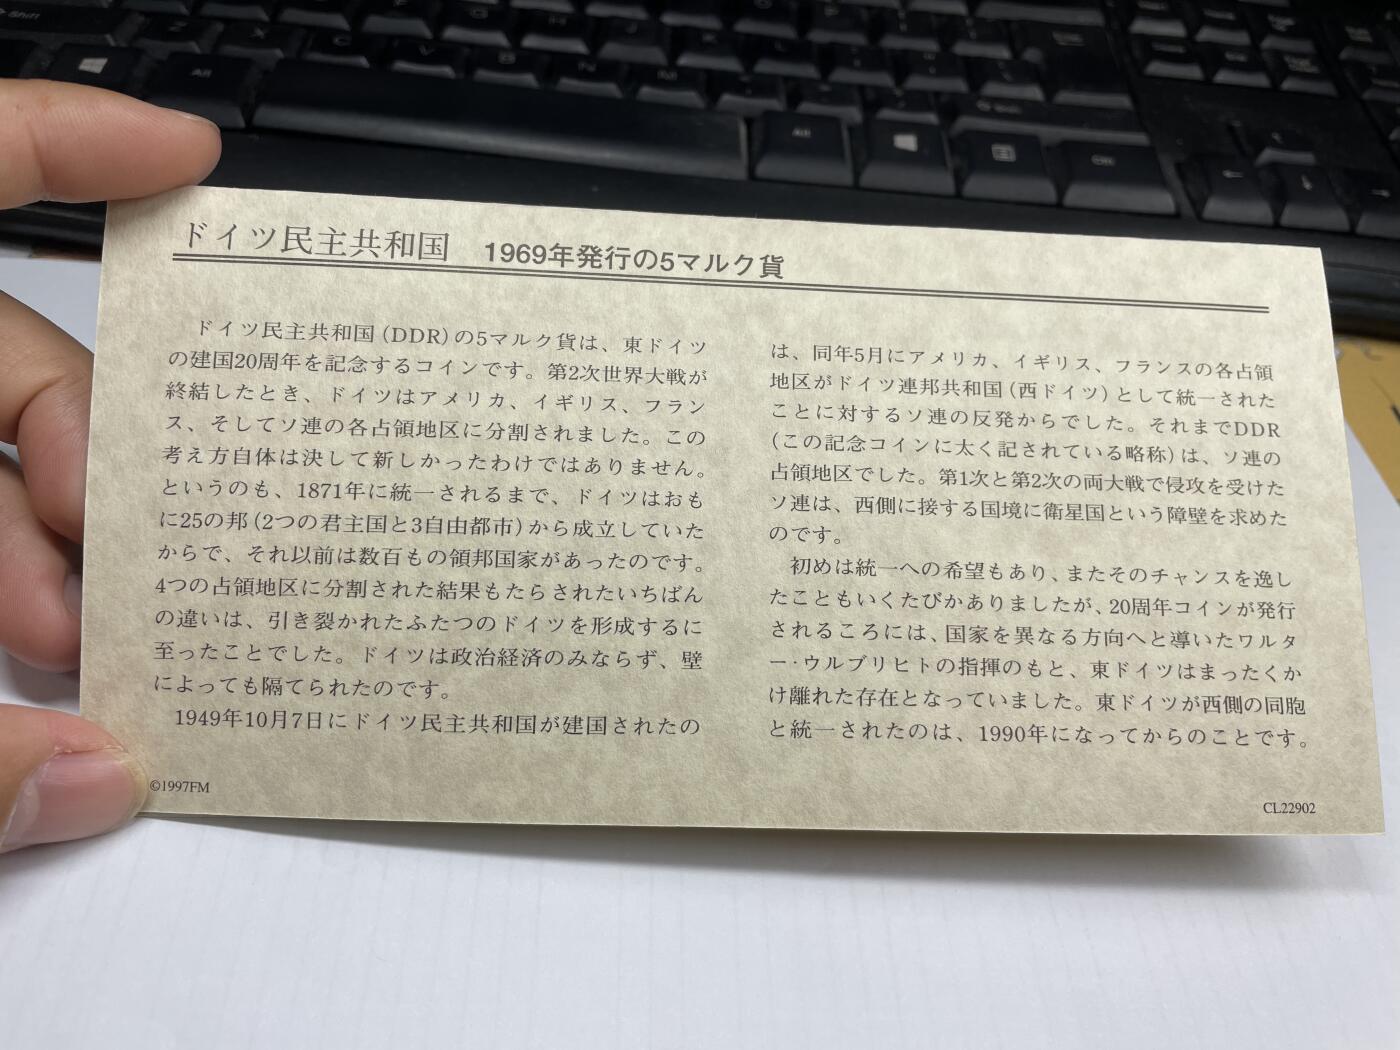 Shift
Z
X
C
V
B
N
M
Alt
Alt
ドイツ民主共和国　1969年発行の5マルク貨
　ドイツ民主共和国(DDR)の5マルク貨は、東ドイツ
の建国20周年を記念するコインです。第2次世界大戦が
終結したとき、ドイツはアメリカ、イギリス、フラン
ス、そしてソ連の各占領地区に分割されました。この
考え方自体は決して新しかったわけではありません。
というのも、1871年に統一されるまで、ドイツはおも
に25の邦(2つの君主国と3自由都市)から成立していた
からで、それ以前は数百もの領邦国家があったのです。
4つの占領地区に分割された結果もたらされたいちばん
の違いは、引き裂かれたふたつのドイツを形成するに
至ったことでした。ドイツは政治経済のみならず、壁
によっても隔てられたのです。
　1949年10月7日にドイツ民主共和国が建国されたの
は、同年5月にアメリカ、イギリス、フランスの各占領
地区がドイツ連邦共和国(西ドイツ)として統一された
ことに対するソ連の反発からでした。それまでDDR
(この記念コインに太く記されている略称)は、ソ連の
占領地区でした。第1次と第2次の両大戦で侵攻を受けた
ソ連は、西側に接する国境に衛星国という障壁を求めた
のです。
　初めは統一への希望もあり、またそのチャンスを逸し
たこともいくたびかありましたが、20周年コインが発行
されるころには、国家を異なる方向へと導いたワルタ
ー・ウルブリヒトの指揮のもと、東ドイツはまったくか
け離れた存在となっていました。東ドイツが西側の同胞
と統一されたのは、1990年になってからのことです。
©1997FM
CL22902